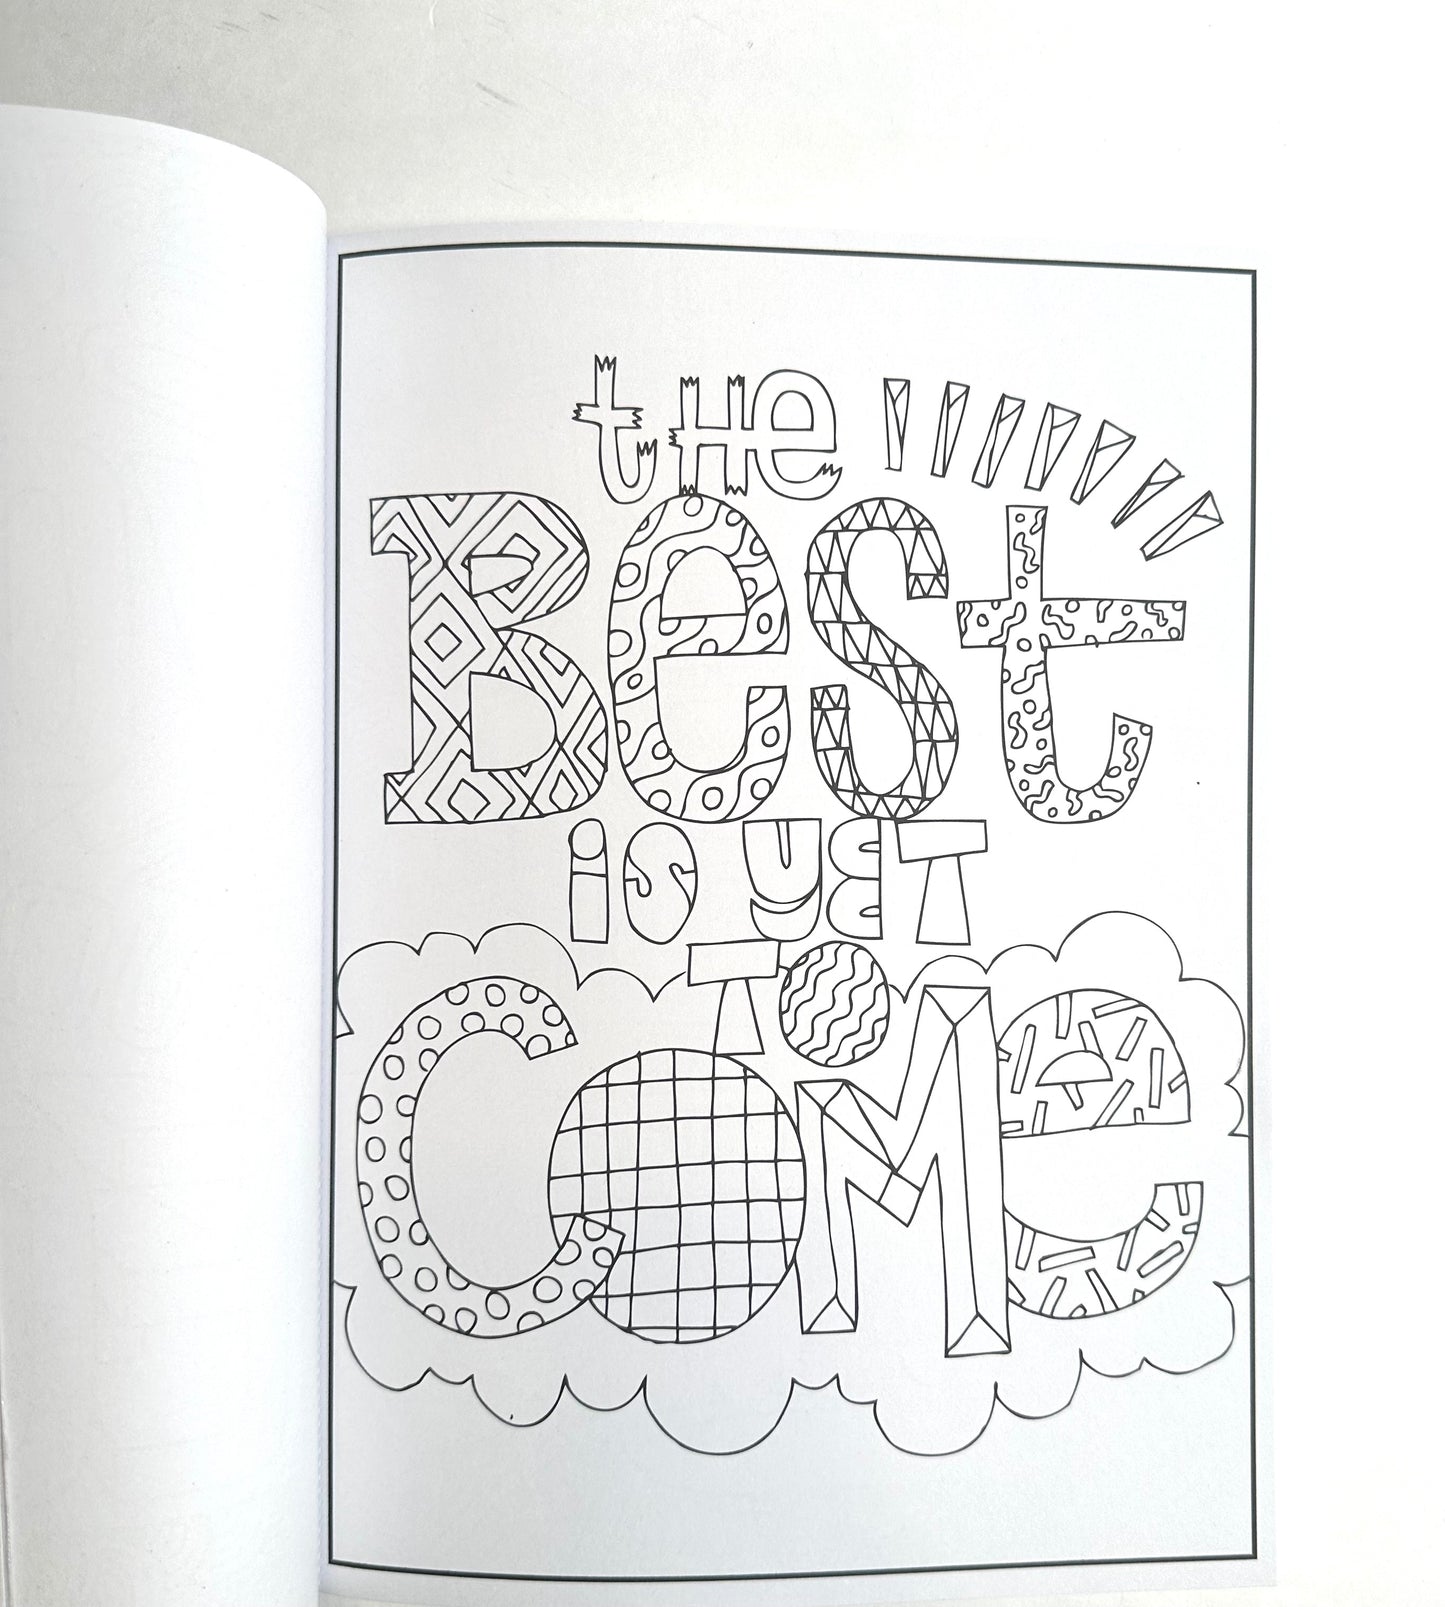 tHe
Best
is yet
TO
COMe